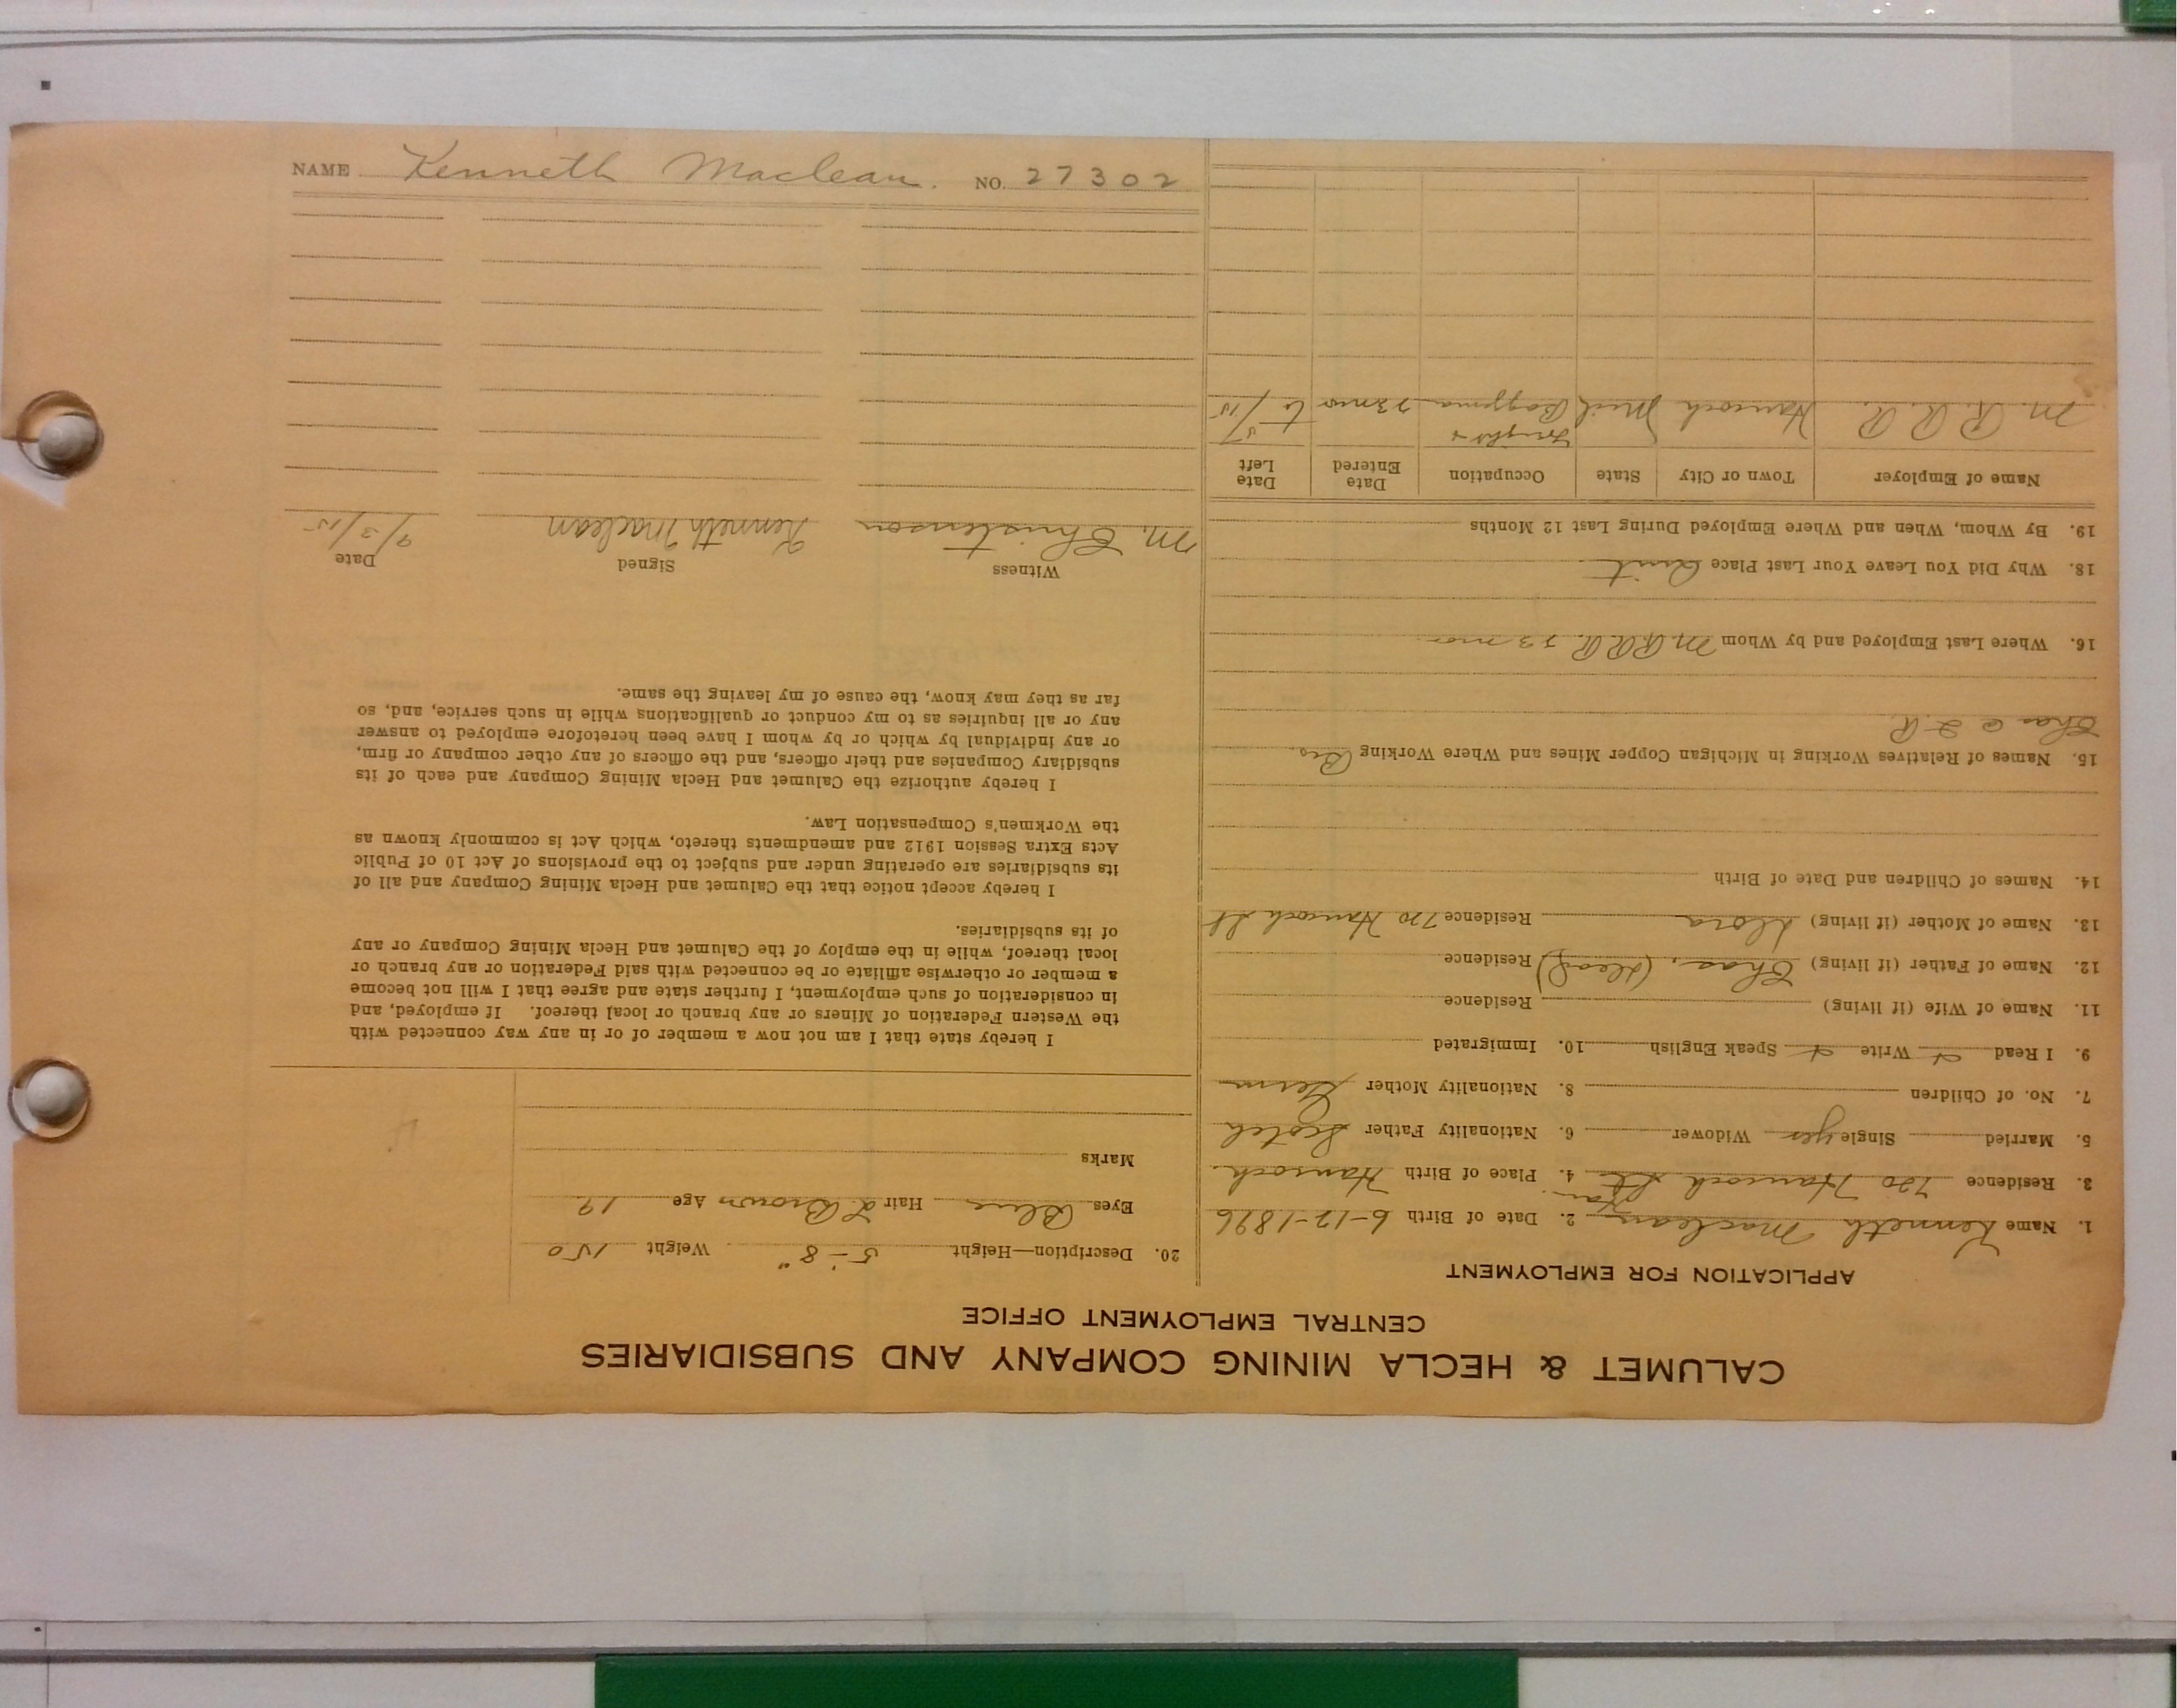 CALUMET & HECLA MINING COMPANY AND SUBSIDIARIES
CENTRAL EMPLOYMENT OFFICE
APPLICATION FOR EMPLOYMENT
1. Name Kenneth Maclean 2. Date of Birth 6-12-1896
3. Residence 720 Hancock St Han 4. Place of Birth Hancock
5. Married Single yes Widower 6. Nationality Father Scotch
7. No. of Children 8. Nationality Mother Germ
9. I Read Write Speak English 10. Immigrated
11. Name of Wife (if living) Residence
12. Name of Father (if living) Chas, (dead) Residence
13. Name of Mother (if living) Residence 720 Hancock St
14. Names of Children and Date of Birth
15. Names of Relatives Working in Michigan Copper Mines and Where Working Bro
Chas
16. Where Last Employed and by Whom M.R.R.R. 23 mos
18. Why Did You Leave Your Last Place Quit
19. By Whom, When and Where Employed During Last 12 Months
Name of Employer Town or City State Occupation Date Entered Date Left
M. R. R. R. Hancock Mich Freight & Baggma 23 mos
20. Description—Height 5'-8" Weight 150
Eyes Blue Hair L Brown Age 19
Marks
I hereby state that I am not now a member of or in any way connected with
the Western Federation of Miners or any branch or local thereof. If employed, and
in consideration of such employment, I further state and agree that I will not become
a member or otherwise affiliate or be connected with said Federation or any branch or
local thereof, while in the employ of the Calumet and Hecla Mining Company or any
of its subsidiaries.
I hereby accept notice that the Calumet and Hecla Mining Company and all of
its subsidiaries are operating under and subject to the provisions of Act 10 of Public
Acts Extra Session 1912 and amendments thereto, which Act is commonly known as
the Workmen's Compensation Law.
I hereby authorize the Calumet and Hecla Mining Company and each of its
subsidiary Companies and their officers, and the officers of any other company or firm,
or any individual by which or by whom I have been heretofore employed to answer
any or all inquiries as to my conduct or qualifications while in such service, and, so
far as they may know, the cause of my leaving the same.
Witness Signed Date
M. Christenson Kenneth Maclean 9/3/15
NAME Kenneth Maclean. NO. 27302